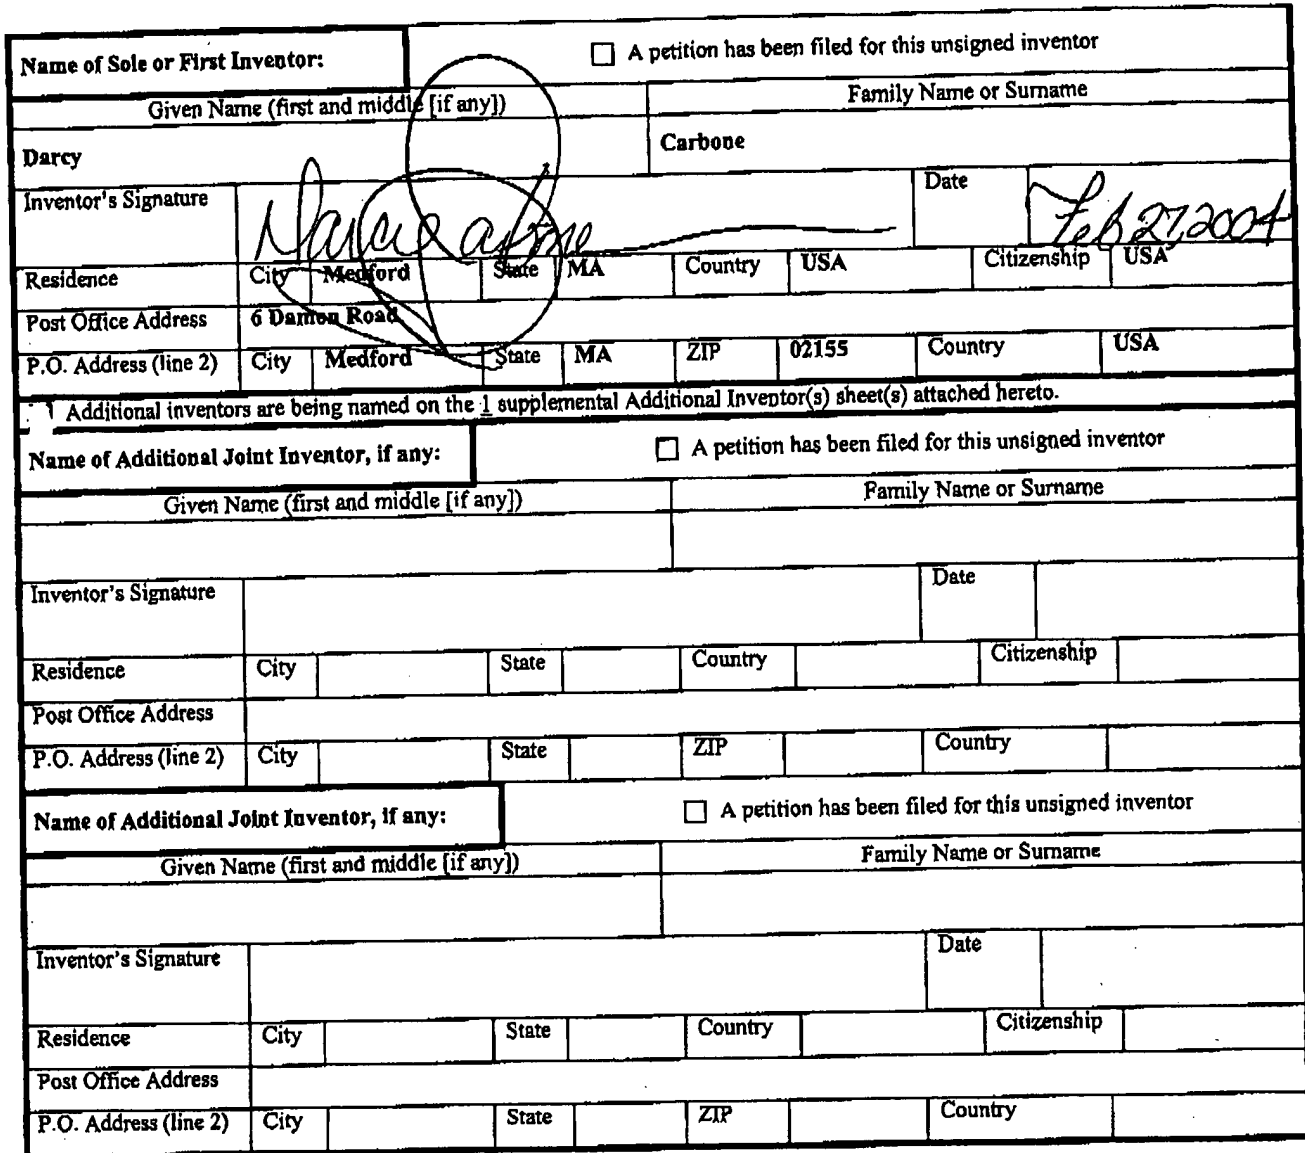 Name of Sole or First Inventor: ☐ A petition has been filed for this unsigned inventor
Given Name (first and middle [if any]) Family Name or Surname
Darcy Carbone
Inventor's Signature Date Feb 27, 2004
Residence City Medford State MA Country USA Citizenship USA
Post Office Address 6 Damon Road
P.O. Address (line 2) City Medford State MA ZIP 02155 Country USA
Additional inventors are being named on the 1 supplemental Additional Inventor(s) sheet(s) attached hereto.
Name of Additional Joint Inventor, if any: ☐ A petition has been filed for this unsigned inventor
Given Name (first and middle [if any]) Family Name or Surname
Inventor's Signature Date
Residence City State Country Citizenship
Post Office Address
P.O. Address (line 2) City State ZIP Country
Name of Additional Joint Inventor, if any: ☐ A petition has been filed for this unsigned inventor
Given Name (first and middle [if any]) Family Name or Surname
Inventor's Signature Date
Residence City State Country Citizenship
Post Office Address
P.O. Address (line 2) City State ZIP Country